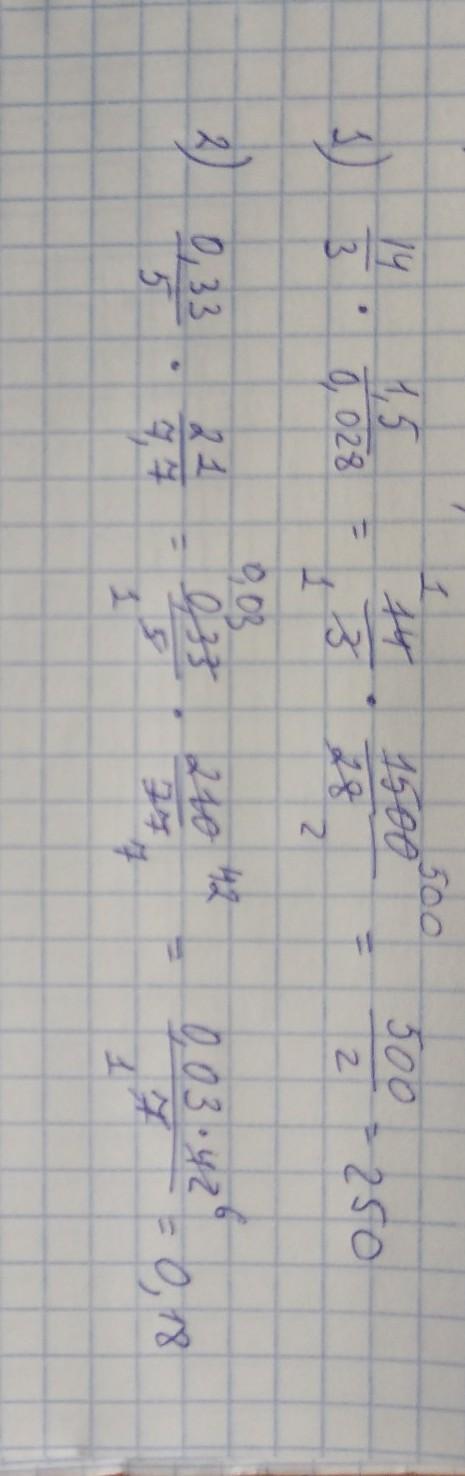 1) 14/3 · 1,5/0,028 = 1 14/3 1 · 1500 500/28 2 = 500/2 = 250
2) 0,33/5 · 21/7,7 = 0,03 0,33/5 1 · 210 42/77 7 = 0,03·42 6/7 1 = 0,18